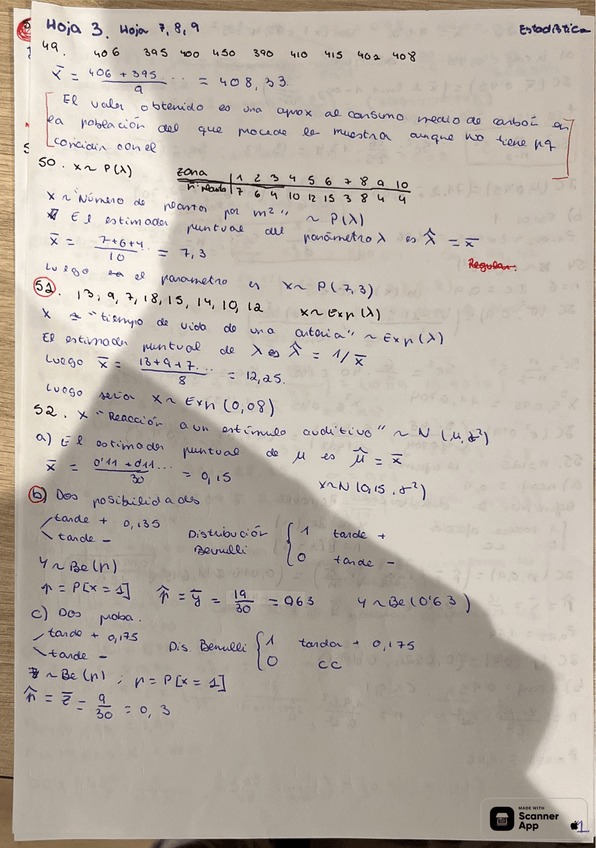 Hoja 3. Hoja 7, 8, 9
Estadística
49. 406 395 400 450 390 410 415 401 408
x̄ = 406 + 395 ... / 9 = 408,33.
El valor obtenido es una aprox al consumo medio de carbón en
la población del que procede la muestra aunque no tiene pq
concidir con el
50. X ~ P(λ)
zona 1 2 3 4 5 6 7 8 9 10
nº plantas 7 6 4 10 12 15 3 8 4 4
X ~ "Número de plantas por m²" ~ P(λ)
El estimador puntual del parámetro λ es λ̂ = x̄
x̄ = 7+6+4.. / 10 = 7,3
Regular.
Luego el parametro es X ~ P(7,3)
51. 13, 9, 7, 18, 15, 14, 10, 12 X ~ Exp(λ)
X ~ "tiempo de vida de una" ~ Exp(λ)
El estimador puntual de λ es λ̂ = 1/x̄
Luego x̄ = 13+9+7... / 8 = 12,25.
Luego seria X ~ Exp(0,08)
52. X "Reacción a un estimulo auditivo" ~ N(μ,σ²)
a) El estimador puntual de μ es μ̂ = x̄
x̄ = 0'11 + 0'11... / 30 = 0,15 X~N(0,15, σ²)
b) Dos posibilidades
tarde + 0,135
tarde -
Distribución Bernulli { 1 tarde +
0 tarde -
Y ~ Be(p)
p = P[X = 1] p̂ = ȳ = 19/30 = 0,63 Y ~ Be(0'63)
c) Dos proba.
tarde + 0,175
tarde -
Dis Benulli { 1 tardar + 0,175
0 cc
Z ~ Be(p) ; p = P[X = 1]
p̂ = z̄ = 9/30 = 0,3
MADE WITH
Scanner
App
1